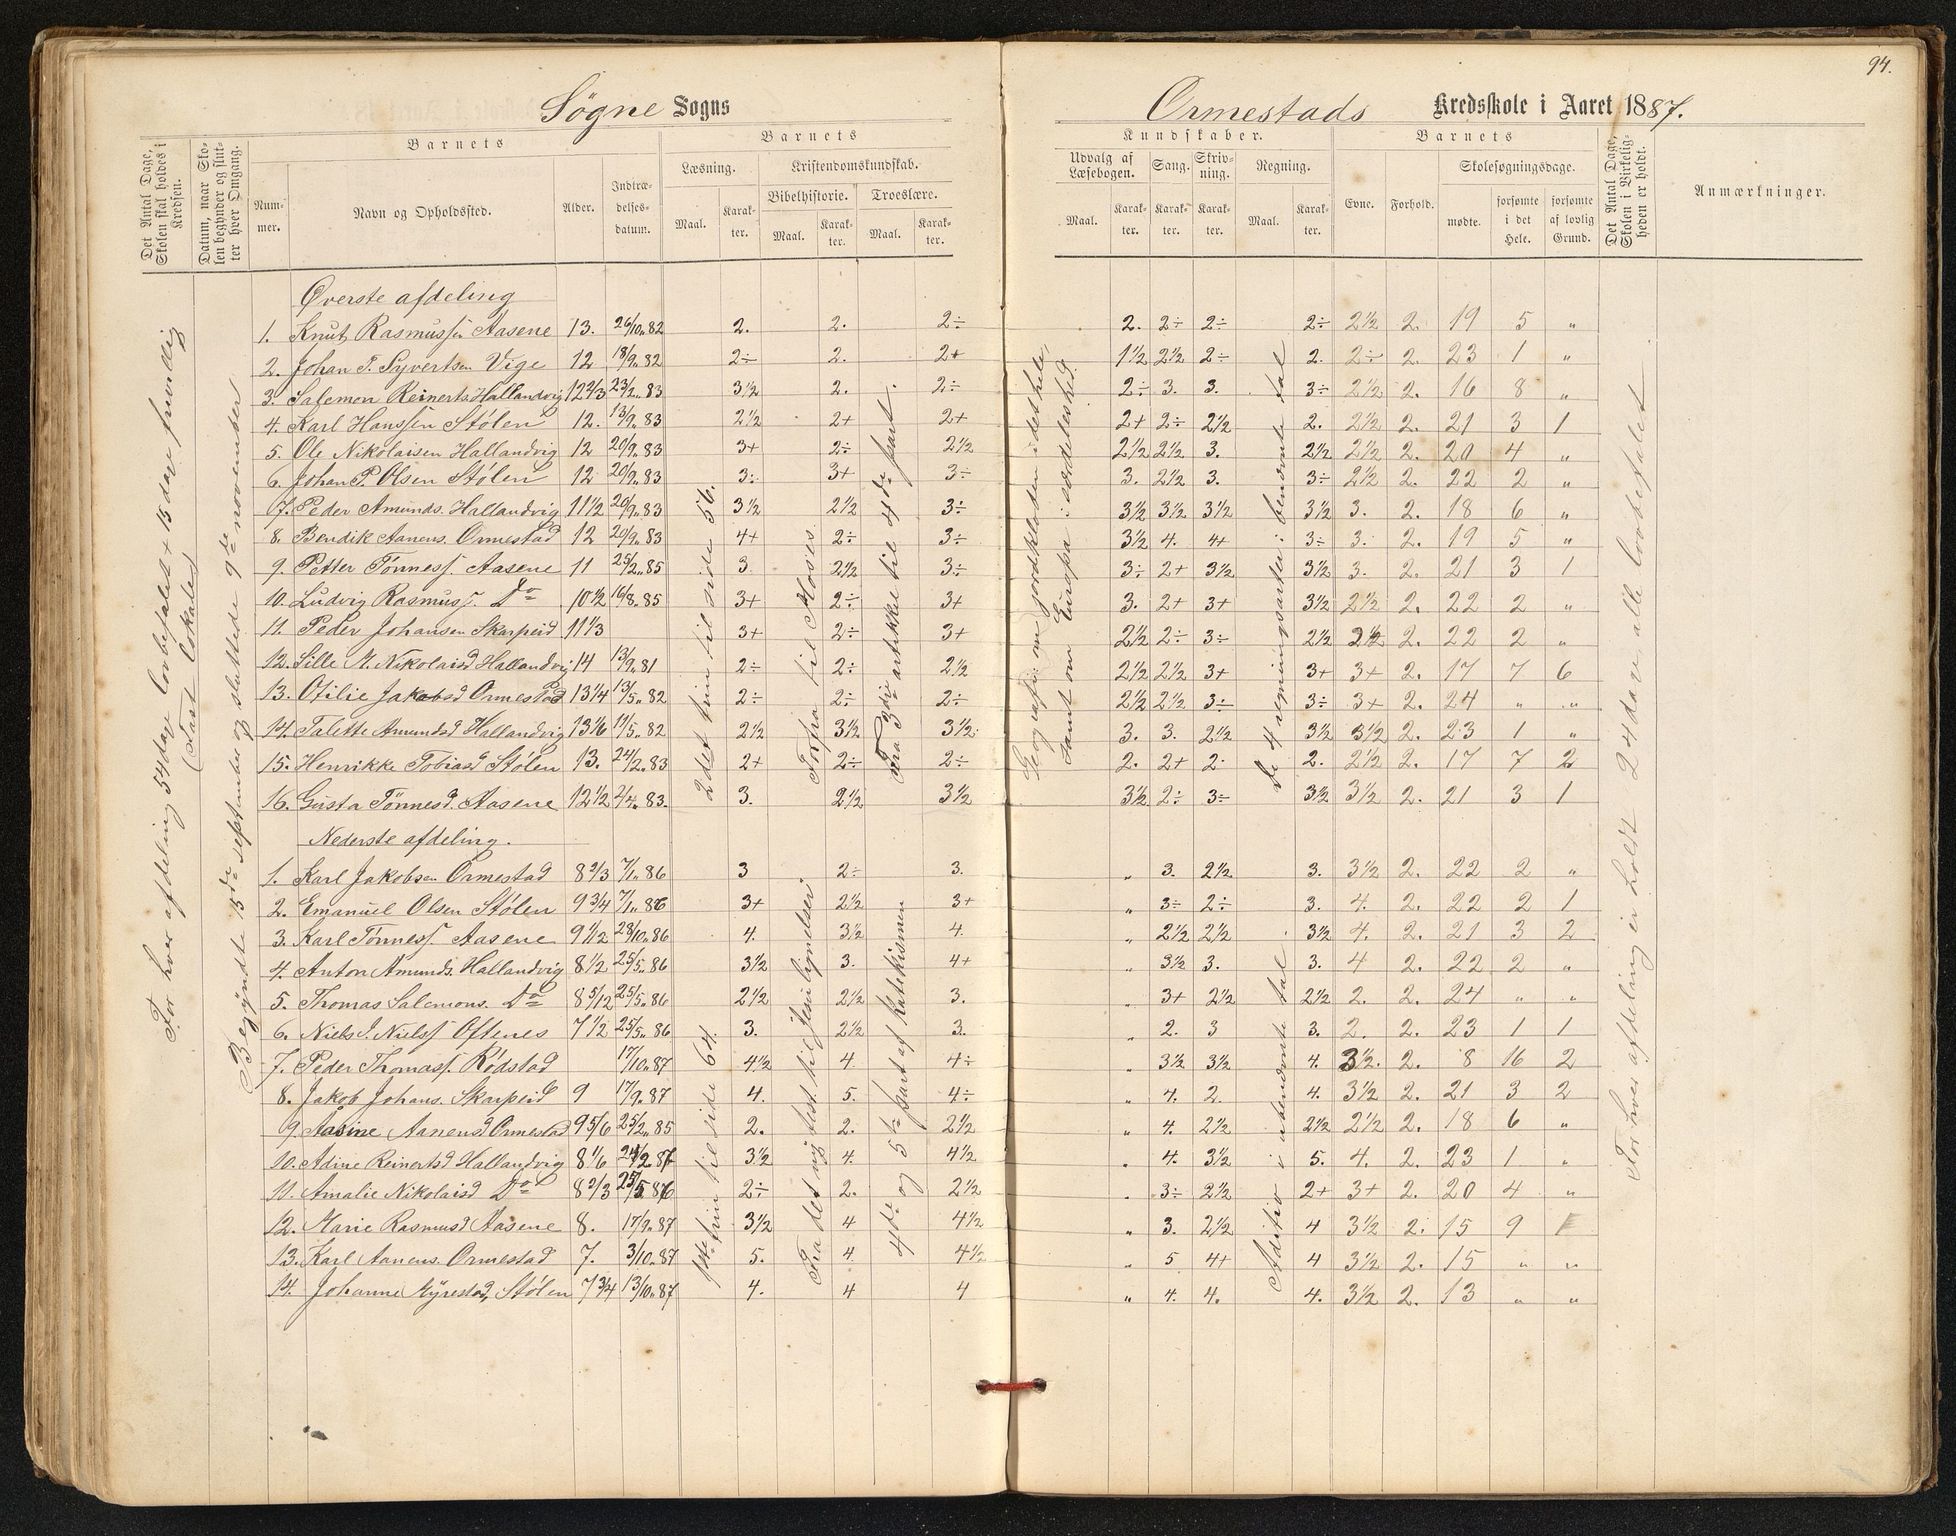 94.
Søgne Sogns
Ormestads Kredsskole i Aaret 1887.
Det Antal Dage, Skolen skal holdes i Kredsen.
Datum, naar Skolen begynder og slutter hver Omgang.
Barnets
Nummer.
Navn og Opholdssted.
Alder.
Indtrædelsesdatum.
Barnets
Læsning.
Maal.
Karakter.
Kristendomskundskab.
Bibelhistorie.
Maal.
Karakter.
Troeslære.
Maal.
Karakter.
Kundskaber.
Udvalg af Læsebogen.
Maal.
Karakter.
Sang.
Karakter.
Skrivning.
Karakter.
Regning.
Maal.
Karakter.
Barnets
Evne.
Forhold.
Skolesøgningsdage.
mødte.
forsømte i det Hele.
forsømte af lovlig Grund.
Det Antal Dage, Skolen i Virkeligheden er holdt.
Anmærkninger.
For hver afdeling 54 dage lovbefalet + 15 dar frivillig
(Fast lokale)
Begyndte 15de september og sluttede 9de november
2det trin til side 56.
Forfra til Moses
Fra 3die artikkel til 4de part.
Geografi: om jordkloden i det hele,
samt om Europa i særdeleshed.
De 4 regningsarter i benævnte tal
For hver afdeling er holdt 24 dar, alle lovbefalet
Øverste afdeling
1. Knut Rasmussen Aasene 13. 26/10.82 2. 2. 2÷ 2. 2÷ 2÷ 2÷ 2½ 2. 19 5 "
2. Johan T. Syvertsen Vige 12 18/9.82 2÷ 2. 2+ 1½ 2½ 2÷ 2. 2÷ 2. 23 1 "
3. Salemon Reinerts. Hallandvig 12 2/3 23/2.83 3½ 2. 2÷ 2÷ 3. 3. 3÷ 2½ 2. 16 8 "
4. Karl Hanssen Stølen 12. 13/9.83 2½ 2+ 2+ 2+ 2÷ 2½ 2. 2½ 2. 21 3 1
5. Ole Nikolaisen Hallandvig 12 20/9.83 3+ 2÷ 2½ 2½ 2½ 3. 2½ 2½ 2. 20 4 "
6. Johan P. Olsen Stølen 12 20/9.83 3÷ 3+ 3÷ 3. 2½ 3. 3÷ 2½ 2. 22 2 "
7. Peder Amunds. Hallandvig 11½ 20/9.83 3½ 2½ 3÷ 3½ 3½ 3½ 3½ 3. 2. 18 6 "
8. Bendik Aanens. Ormestad 12 20/9.83 4+ 2÷ 3÷ 3½ 4. 4+ 3÷ 3. 2. 19 5 "
9. Petter Tønness. Aasene 11 25/2.85 3. 2½ 3÷ 3÷ 2+ 3½ 3½ 3. 2. 21 3 1
10. Ludvig Rasmuss. Do 10½ 16/8.85 3+ 2÷ 3+ 3. 2+ 3+ 3½ 2½ 2. 22 2 "
11. Peder Johansen Skarpeid 11 1/3 3+ 2÷ 3+ 2½ 2÷ 3÷ 2½ 2½ 2. 22 2 "
12. Sille M. Nikolaisd Hallandvig 14 13/9.81 2÷ 2÷ 2½ 2½ 2½ 3+ 3+ 3+ 2. 17 7 6
13. Otilie Jakobsd Ormestad 13¼ 13/5.82 2÷ 2÷ 2÷ 2½ 2½ 3÷ 3÷ 3+ 2. 24 " "
14. Talette Amundsd Hallandvig 13 1/6 11/5.82 2½ 3½ 3½ 3. 3. 2½ 3½ 3½ 2. 23 1 "
15. Henrikke Tobiasd Stølen 13. 24/2.83 2+ 2÷ 2÷ 2. 2+ 2. 2. 2½ 2. 17 7 2
16. Gusta Tønnesd. Aasene 12½ 2/4.83. 3. 2½ 3½ 3½ 2÷ 3÷ 3½ 3½ 2. 21 3 1
Nederste afdeling.
1ste trin til side 64.
Fra det nye test. til Jesu lignelser
4de og 5te part af katekismen
Aditio i ubenævnte tal
1. Karl Jakobsen Ormestad 8 2/3 7/1.86 3 2÷ 3. " 3. 2½ 3. 3½ 2. 22 2 "
2. Emanuel Olsen Stølen 9¾ 7/1.86 3+ 2½ 3+ " 3÷ 2÷ 3. 4. 2. 22 2 1
3. Karl Tønness. Aasene 9 1/12 28/10.86 4. 3½ 4. " 2½ 2½ 3½ 4. 2. 21 3 2
4. Anton Amunds. Hallandvig 8½ 25/5.86 3½ 3. 4+ " 3½ 3. 3. 4 2. 22 2 "
5. Thomas Salemons. Do 8 5/12 25/5.86 2½ 2½ 3. " 3+ 2½ 2½ 2. 2. 24 " "
6. Niels J. Nielss Oftenes 7½ 25/5.86 3. 2½ 3. " 2. 3 3. 2. 2. 23 1 1
7. Peder Thomass. Rødstad 17/10.87 4½ 4. 4÷ " 3½ 3½ 4. 3½. 2. 8 16 2
8. Jakob Johans. Skarpeid 9 17/9.87 4. 5. 4÷ " 4. 2. 4. 3½ 2. 21 3 2
9. Aasine Aanensd Ormestad 9 5/6 25/2.85 2. 2. 2½ " 4. 2½ 2½ 2½ 2. 18 6 "
10. Adine Reinertsd Hallandvig 8 1/6 24/2.87 3½ 4. 4½ " 4. 3½ 5. 4. 2. 23 1 "
11. Amalie Nikolaisd Do 8 2/3 25/5.86 2÷ 2. 2½ " 3÷ 2½ 2+ 3+ 2. 20 4 "
12. Marie Rasmusd Aasene 8. 17/9.87 3½ 4 4½ " 3. 2½ 4 3½ 2. 15 9
13. Karl Aanens. Ormestad 7. 3/10.87 5. 4. 4½ " 5 4+ 4 3½ 2. 15 " "
14. Johanne Myrestad, Stølen 7¾ 13/10.87 4. 4 4 " 4. 4. 4. 3½ 2. 13 " "